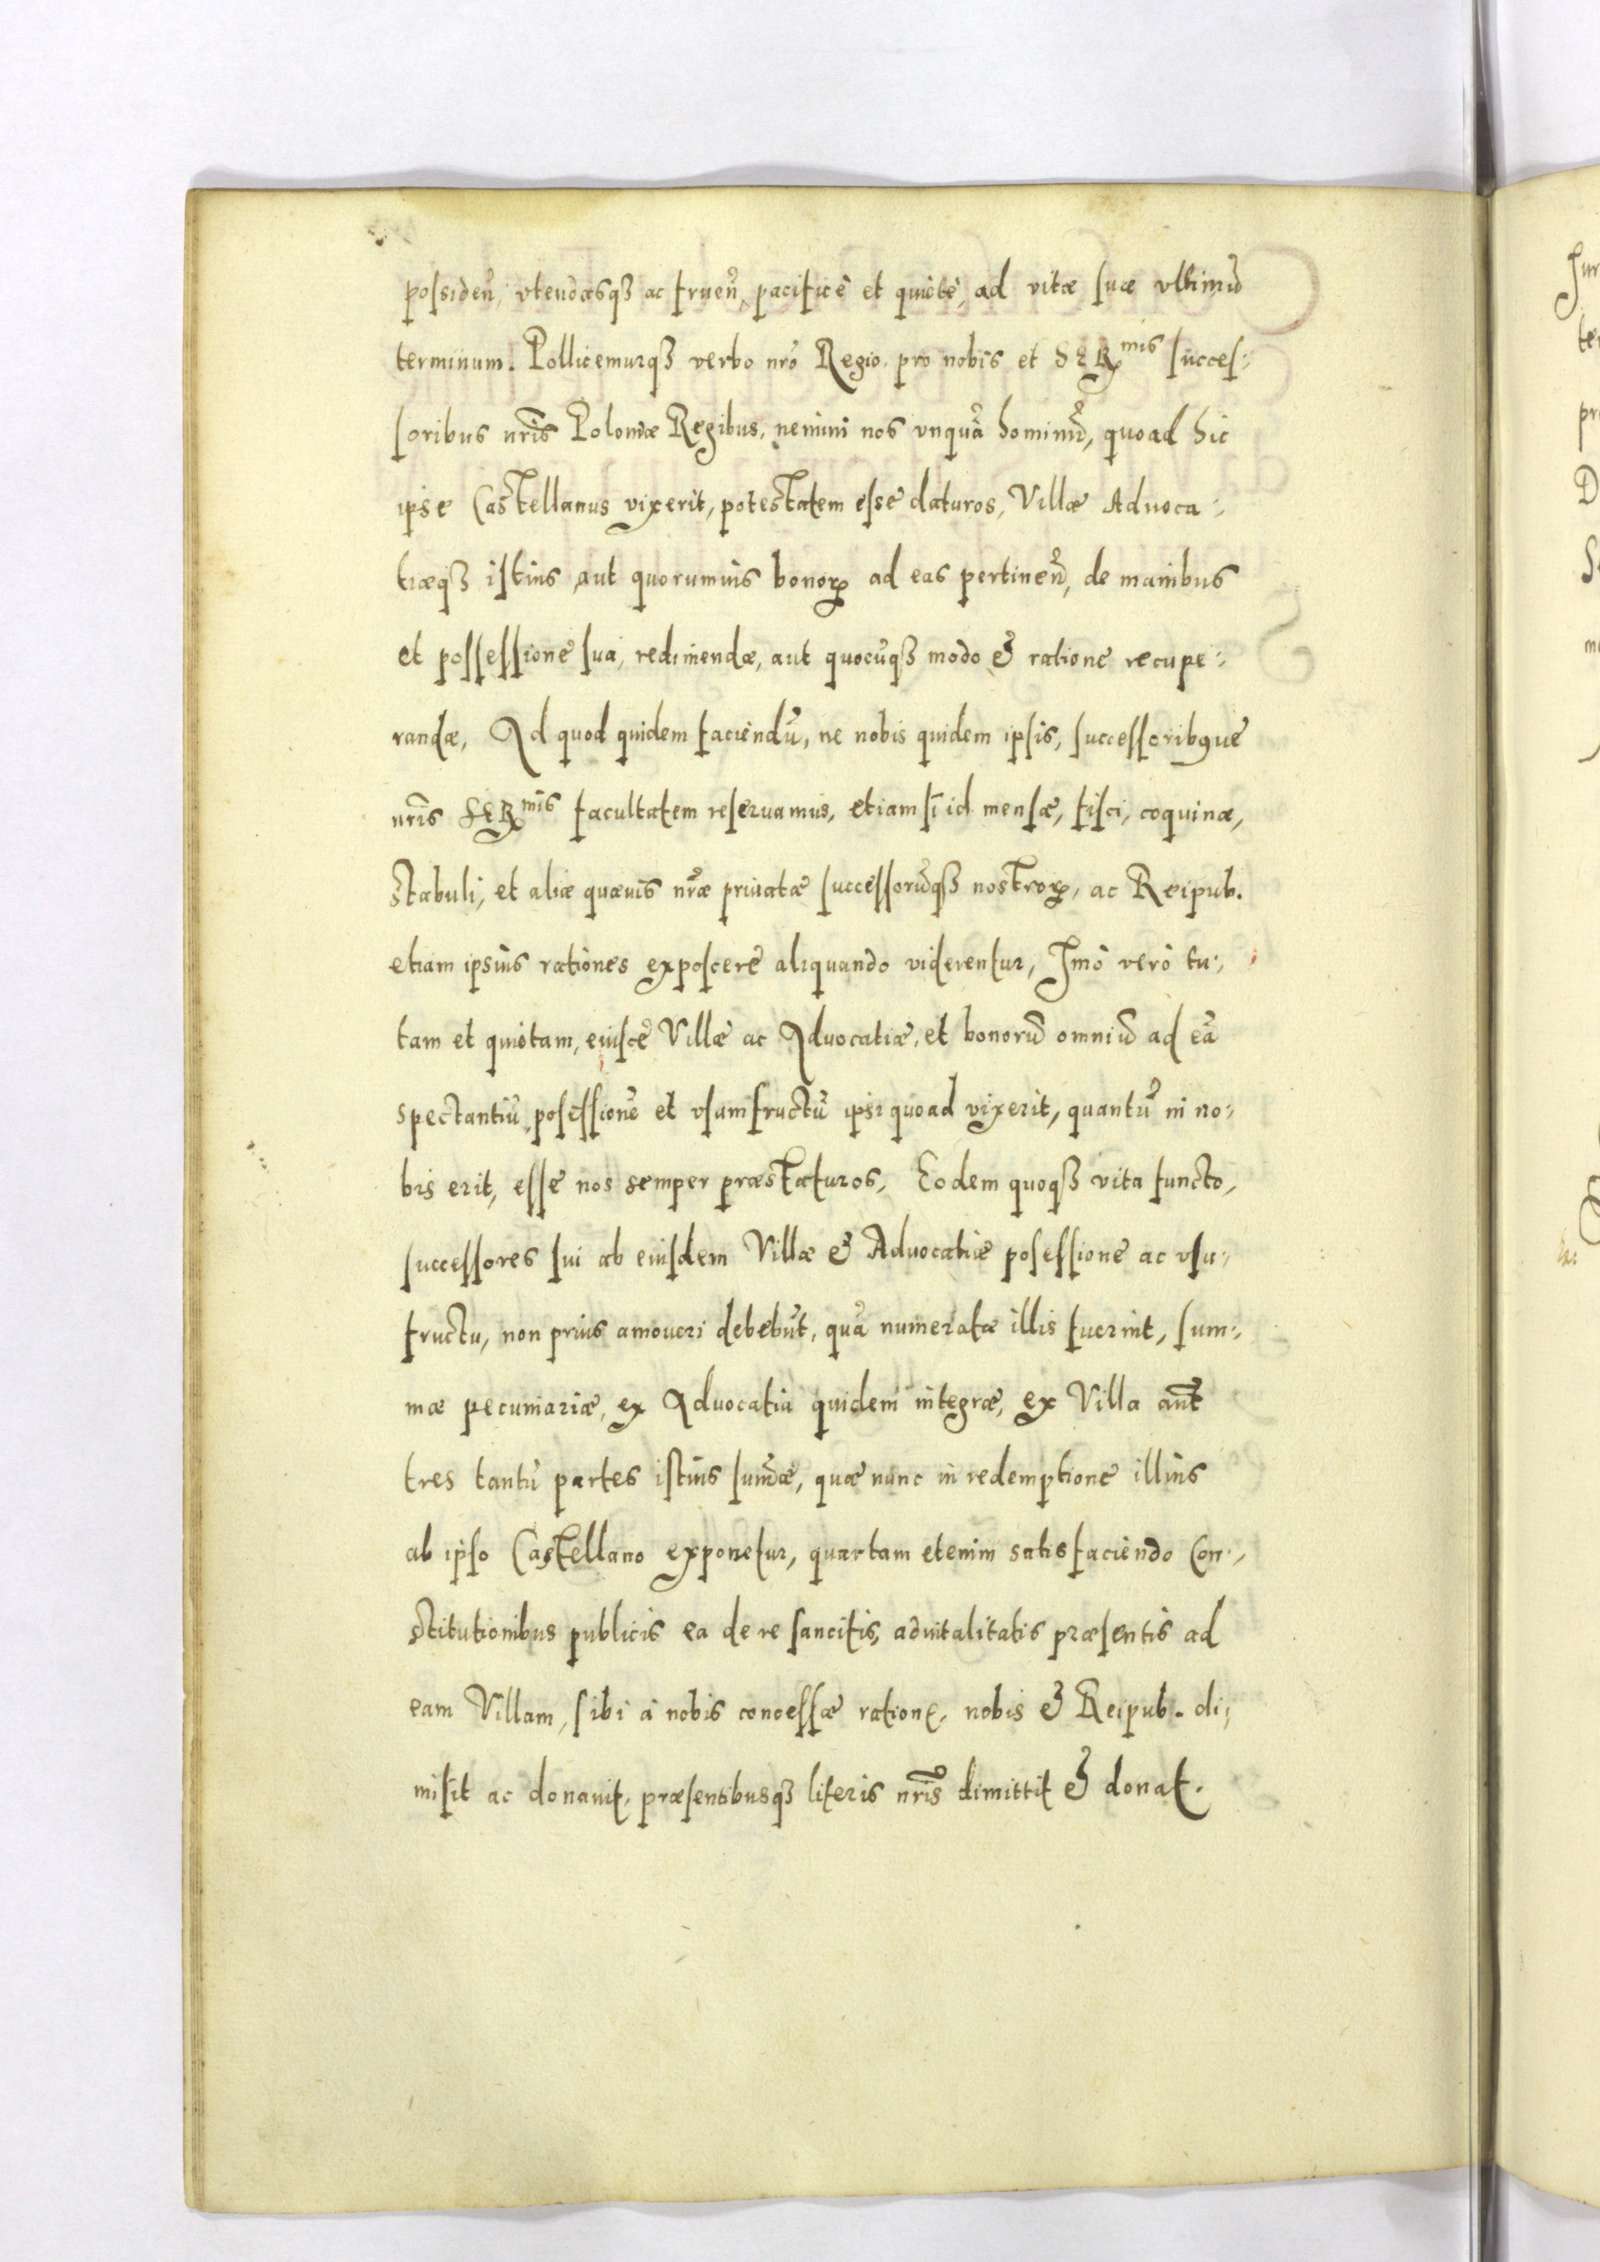 possideñ, vtendasqꝫ ac frueñ, pacificè et quietè, ad vitæ suæ vltimũ
terminum. Pollicemurqꝫ verbo nr̃o Regio, pro nobis et SER^mis succes:
soribus nr̃is Poloniæ Regibus, nemini nos vnquã hominũ, quoad hic
ipse Castellanus vixerit, potestatem esse daturos, Villæ Aduoca:
tiæqꝫ istius aut quorumuis bonoꝝ ad eas pertineñ, de manibus
et possessione sua, redimendæ, aut quocũqꝫ modo & ratione recupe:
randæ, Ad quod quidem faciendũ, ne nobis quidem ipsis, successoribꝰque
nr̃is SER^mis facultatem reseruamus, etiamsi id mensæ, fisci, coquinæ,
stabuli, et aliæ quæuis nr̃æ priuatæ successorũqꝫ nostroꝝ, ac Reipub.
etiam ipsius rationes exposcere aliquando viderentur, Imò verò tu:
tam et quietam, eiusce Villæ ac Aduocatiæ, et bonorũ omniũ ad eã
spectantiũ, posessionẽ et vsumfructũ ipsi quoad vixerit, quantũ in no:
bis erit, esse nos semper præstaturos, Eodem quoqꝫ vita functo,
successores sui ab eiusdem Villæ & Aduocatiæ posessione ac vsu:
fructu, non prius amoueri debebũt, quã numeratæ illis fuerint, sum:
mæ pecuniariæ, ex Aduocatia quidem integræ, ex Villa aũt
tres tantũ partes istius sum̃æ, quæ nunc in redemptione illius
ab ipso Castellano exponetur, quartam etenim satisfaciendo Con:
stitutionibus publicis ea de re sancitis, aduitalitatis præsentis ad
eam Villam, sibi à nobis concessæ ratione, nobis & Reipub. di:
misit ac donauit, præsentibusqꝫ literis nr̃is dimittit & donat.